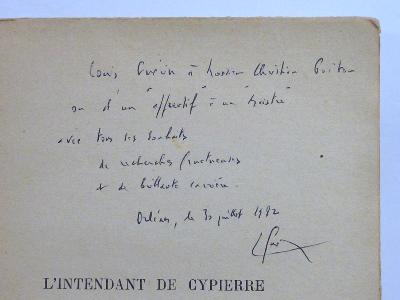 Louis Guérin à Monsieur Christian
ou d'un "effectif" à un "
avec tous ses souhaits
de recherches fructueuses
et de brillante carrière.
Orléans, le 30 juillet 1992
L'INTENDANT DE CYPIERRE